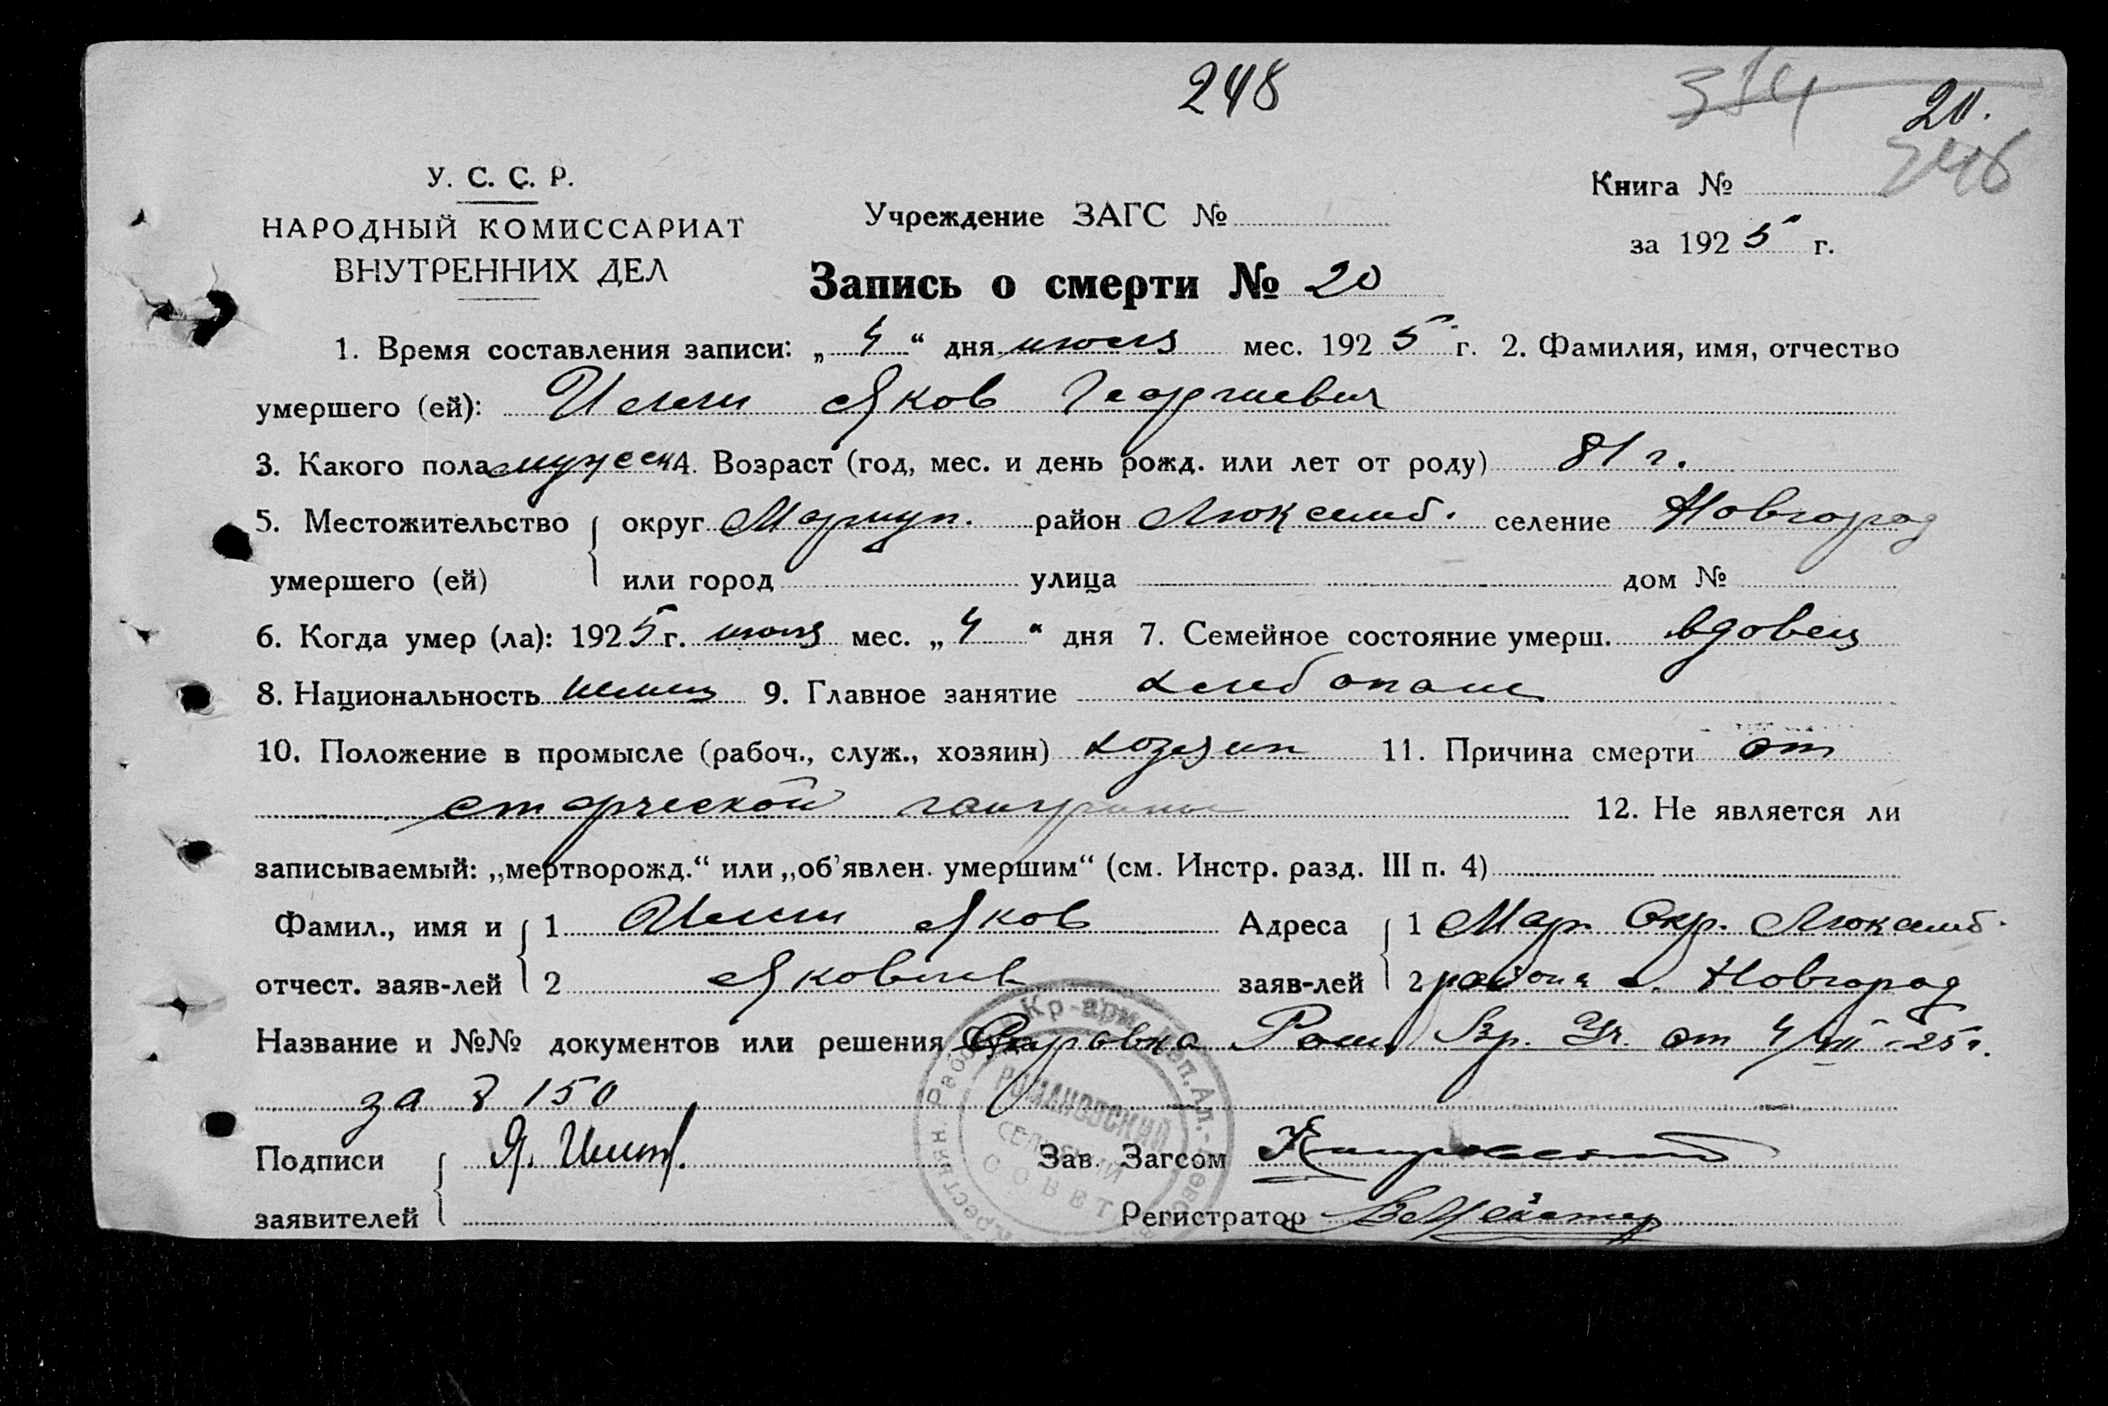 248
314
20.
246
У. С. С. Р.
НАРОДНЫЙ КОМИССАРИАТ
ВНУТРЕННИХ ДЕЛ
Учреждение ЗАГС №
Книга №
за 1925 г.
Запись о смерти № 20
1. Время составления записи: „4“ дня июля мес. 1925 г. 2. Фамилия, имя, отчество
умершего (ей): Яков Георгиевич
3. Какого пола мужеск 4. Возраст (год, мес. и день рожд. или лет от роду) 81 г.
5. Местожительство округ Мариуп. район Люксемб. селение Новгород
умершего (ей) или город улица дом №
6. Когда умер (ла): 1925 г. июля мес. „4“ дня 7. Семейное состояние умерш. вдовец
8. Национальность немец 9. Главное занятие хлебопаш
10. Положение в промысле (рабоч., служ., хозяин) хозяин 11. Причина смерти от
старческой гангрены 12. Не является ли
записываемый: „мертворожд.“ или „об'явлен. умершим“ (см. Инстр. разд. III п. 4)
Фамил., имя и 1 Яков Адреса 1 Мар. Окр. Люксемб.
отчест. заяв-лей 2 Яковлев заяв-лей 2 района с. Новгород
Название и №№ документов или решения Справка Ром. Вр. Уч. от 4/VII-25 г.
за № 150
Подписи Я. Зав. Загсом
заявителей Регистратор
РОМАНОВСКИЙ
СЕЛЬСКИЙ
СОВЕТ